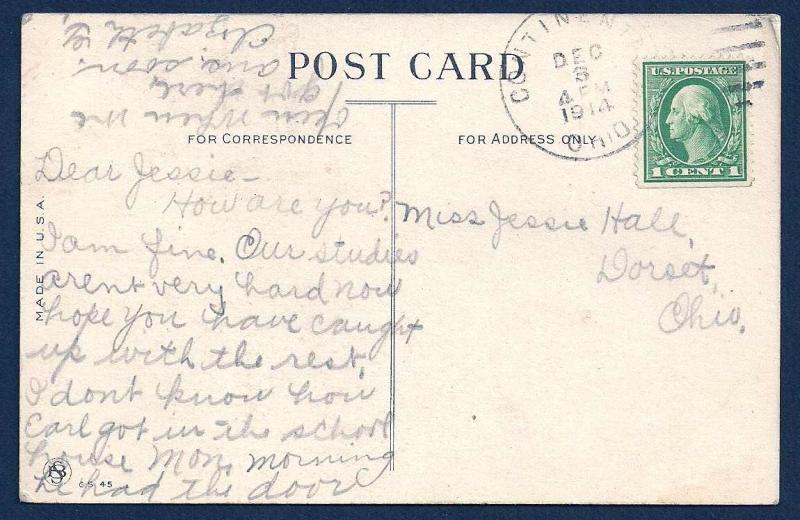 POST CARD
FOR CORRESPONDENCE
FOR ADDRESS ONLY
MADE IN U.S.A.
CONTINENT
DEC
3
4 PM
1914
OHIO
U.S. POSTAGE
1 CENT 1
Dear Jessie –
How are you?
I am fine. Our studies
arent very hard now
hope you have caught
up with the rest,
I dont know how
Earl got in the school
house Mon, morning
he had the door
open when we
got there,
ans. soon.
Elizabeth G
Miss Jessie Hall,
Dorset,
Ohio,
C.S. 45